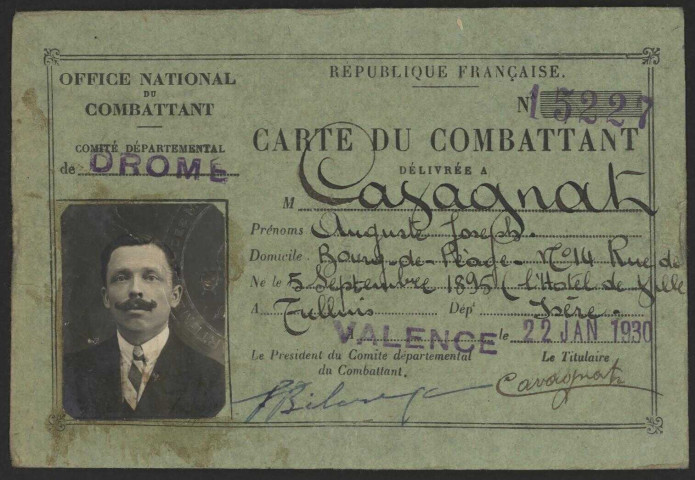 OFFICE NATIONAL
DU
COMBATTANT
COMITÉ DÉPARTEMENTAL
de DROME
RÉPUBLIQUE FRANÇAISE.
N 15227
CARTE DU COMBATTANT
DÉLIVRÉE A
M Cavagnat
Prénoms Auguste Joseph.
Domicile Bourg-de-Péage - N°14 Rue de
Ne le 5 Septembre 1895 ( l'Hotel de Ville
A Tullins Dépt Isère.
A VALENCE le 22 JAN 1930
Le President du Comite départemental
du Combattant.
Le Titulaire
Cavagnat